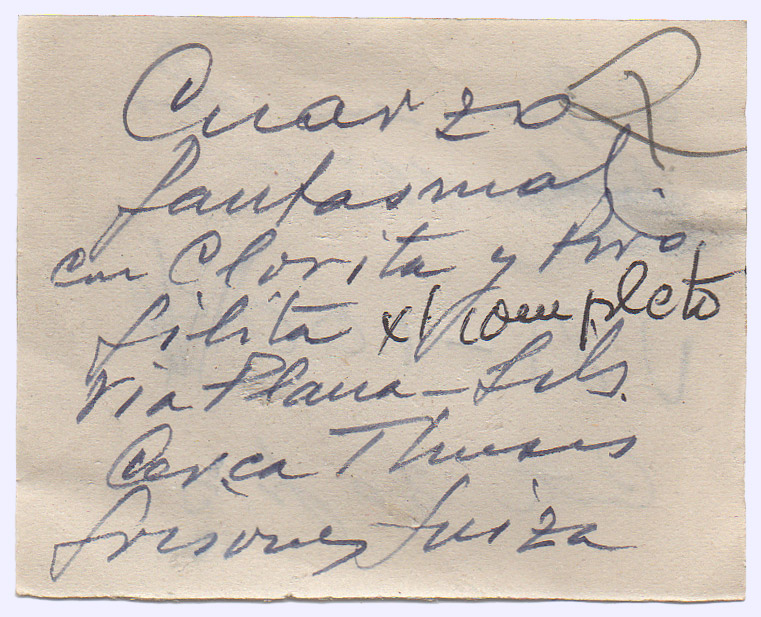 Cuarzo R
fantasmal
con Clorita y piro
filita xl completo
Via Plana - Sils
Cerca Thusis
Grisones Suiza